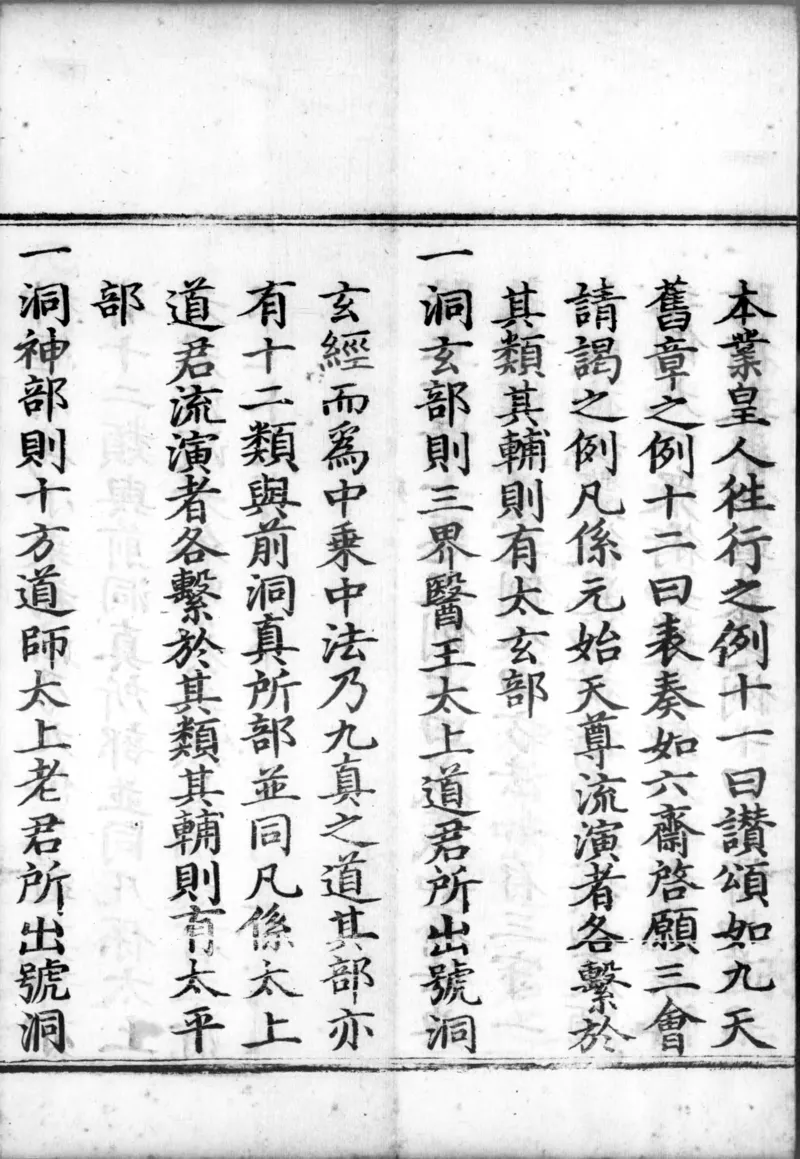 本業皇人徃行之例十一曰讃頌如九天
舊章之例十二曰表奏如六齋啓願三會
請謁之例凡係元始天尊流演者各繫於
其類其輔則有太玄部
一洞玄部則三界醫王太上道君所出號洞
玄經而爲中乗中法乃九真之道其部亦
有十二類與前洞真所部並同凡係太上
道君流演者各繫於其類其輔則有太平
部
一洞神部則十方道師太上老君所出號洞